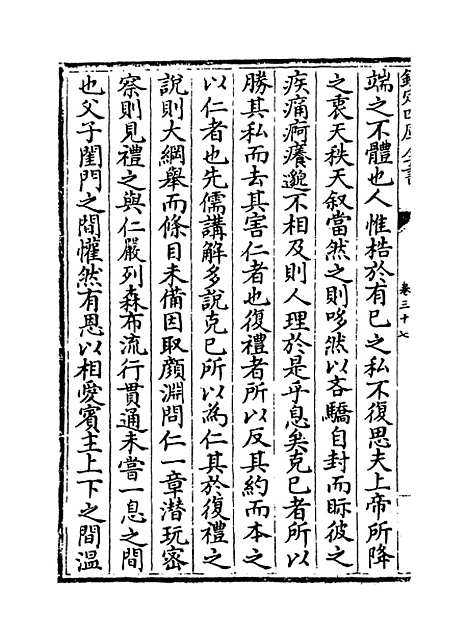 欽定四庫全書
卷三十七
端之不體也人惟梏於有已之私不復思夫上帝所降
之衷天秩天叙當然之則哆然以吝驕自封而眎彼之
疾痛疴癢邈不相及則人理於是乎息矣克已者所以
勝其私而去其害仁者也復禮者所以反其約而本之
以仁者也先儒講解多說克已所以為仁其於復禮之
說則大綱舉而條目未備因取顏淵問仁一章潜玩宻
察則見禮之與仁嚴列森布流行貫通未嘗一息之間
也父子閨門之間懽然有恩以相愛賓主上下之間溫